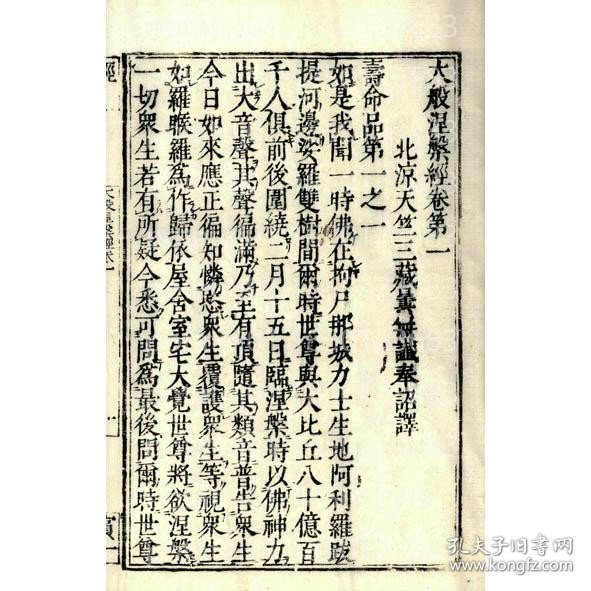 大般涅槃經卷第一
北涼天竺三藏曇無讖奉 詔譯
壽命品第一之一
如是我聞一時佛在拘尸那城力士生地阿利羅跋
提河邊娑羅雙樹間爾時世尊與大比丘八十億百
千人俱前後圍繞二月十五日臨涅槃時以佛神力
出大音聲其聲徧滿乃至有頂隨其類音普告衆生
今日如來應正徧知憐愍衆生覆護衆生等視衆生
如羅睺羅爲作歸依屋舍室宅大覺世尊將欲涅槃
一切衆生若有所疑今悉可問爲最後問爾時世尊
經
孔夫子旧书网